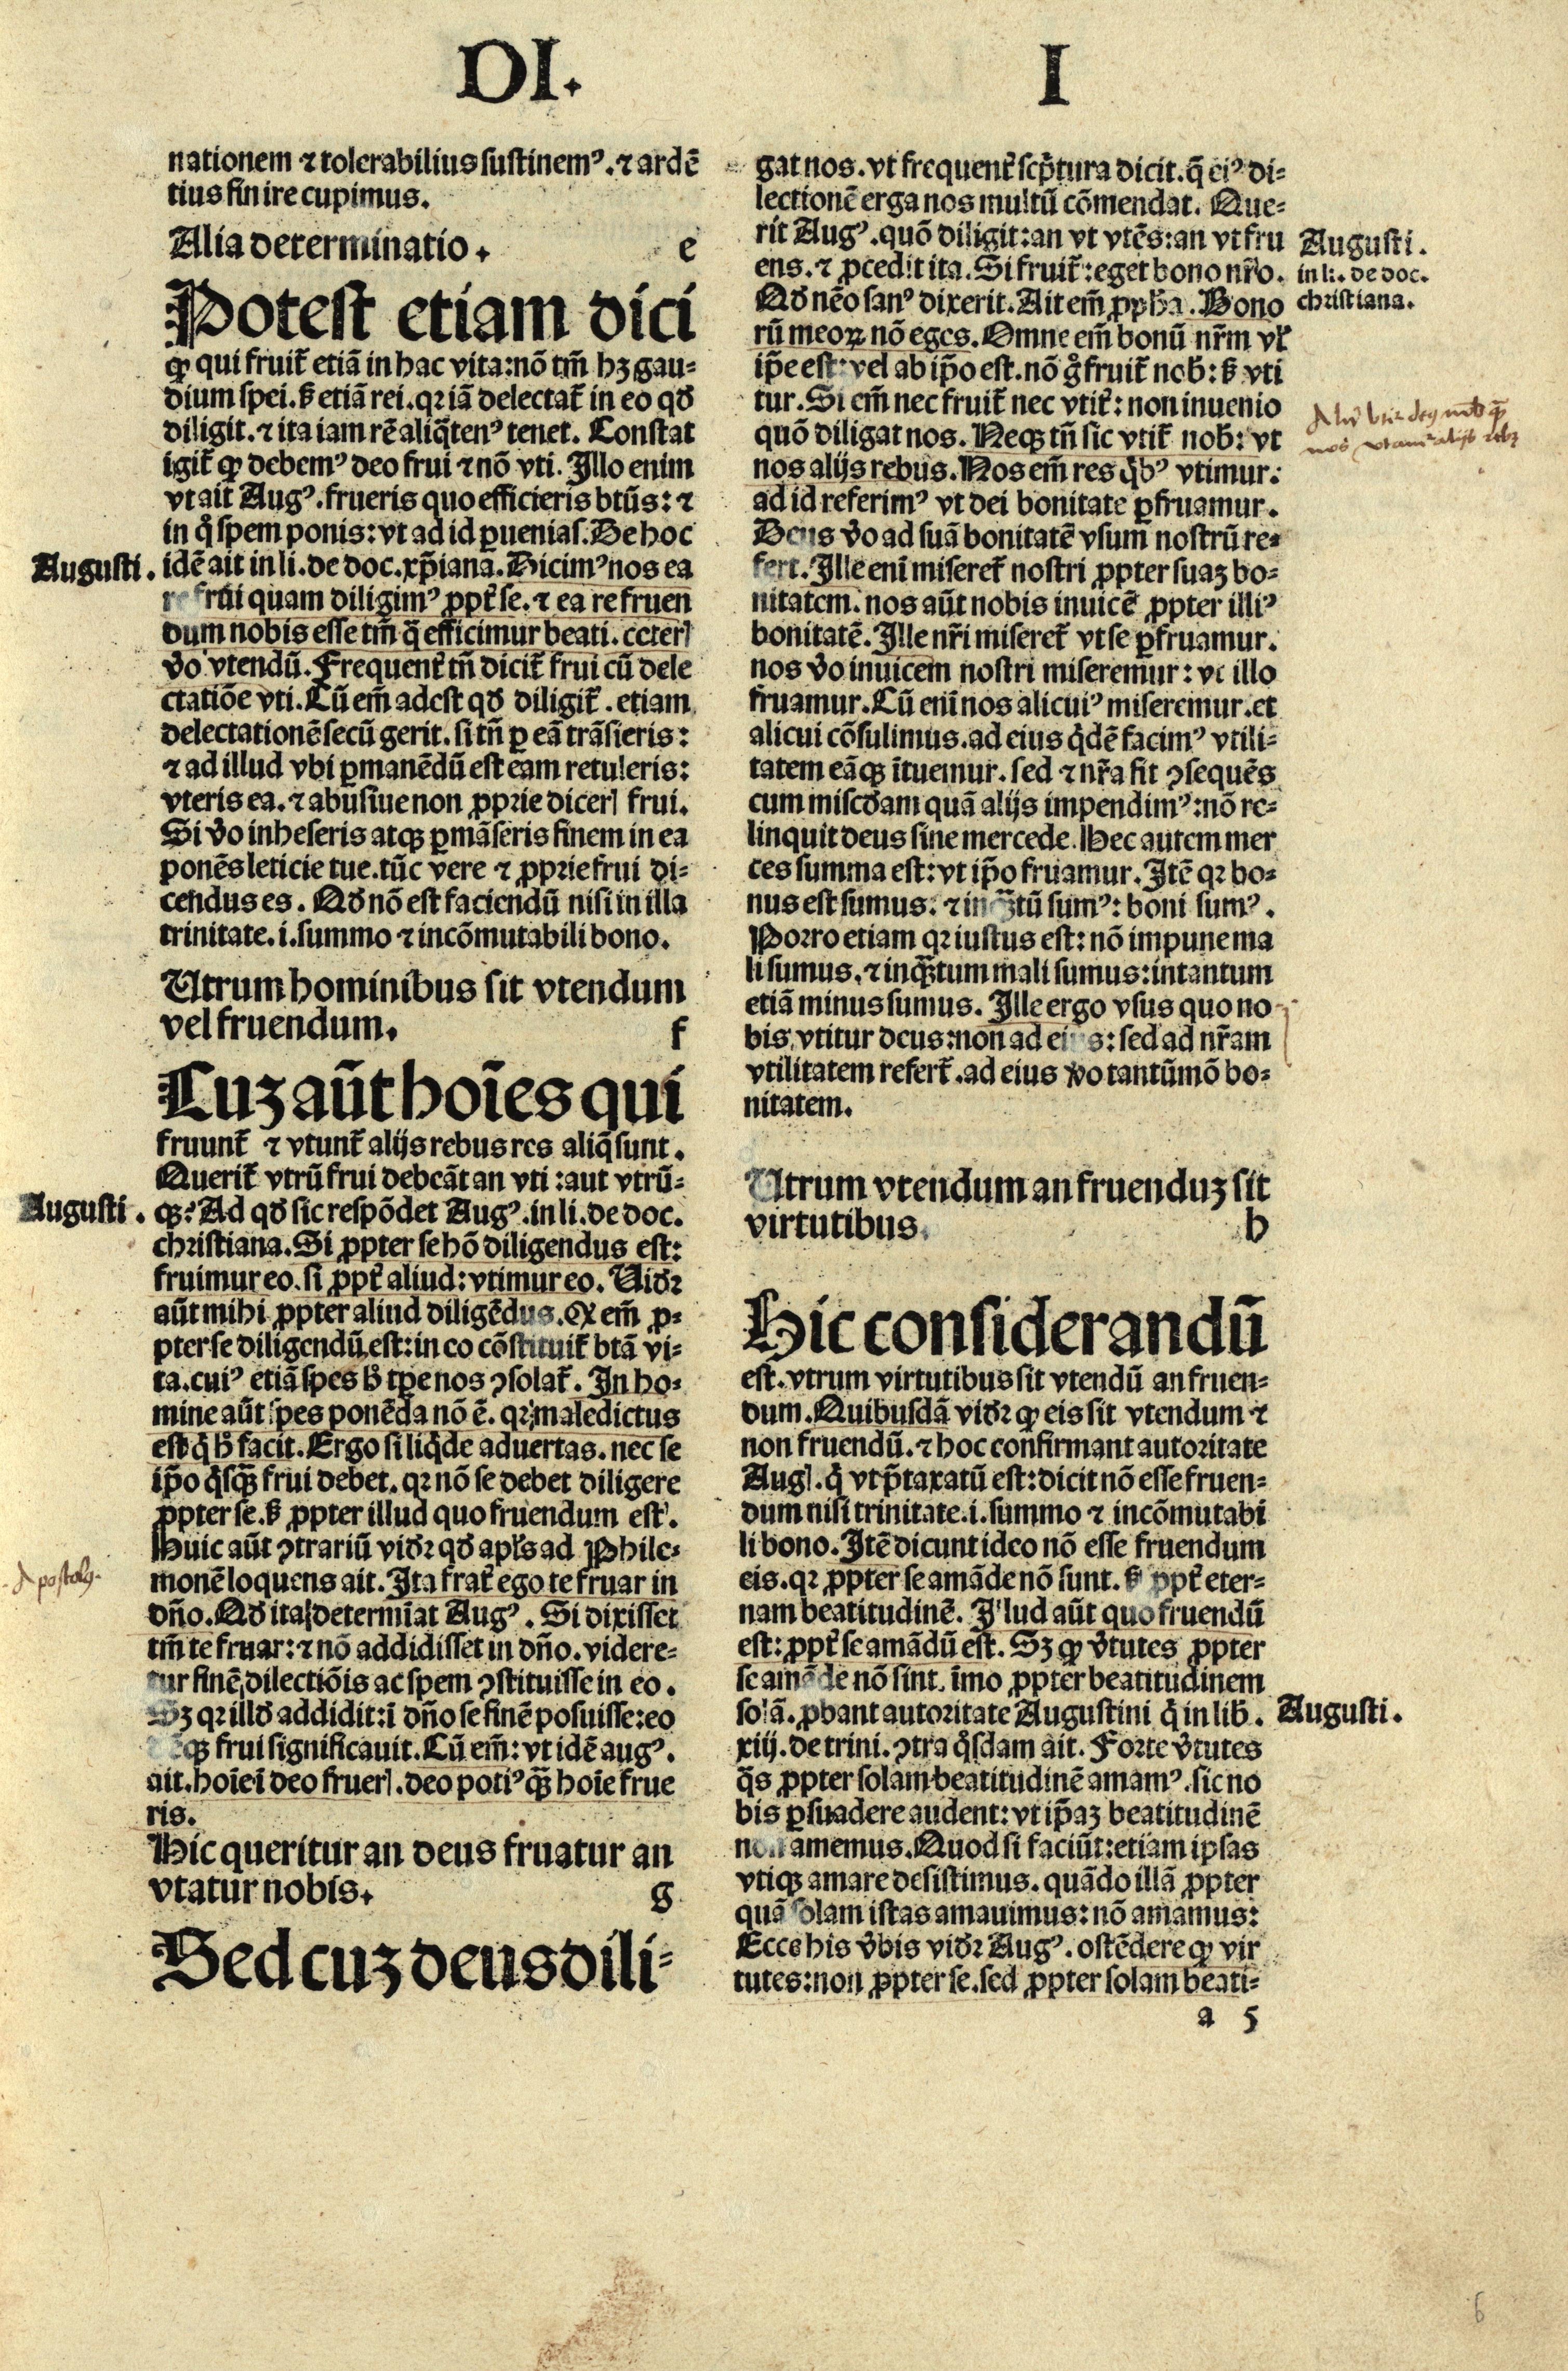 DI.
I
nationem ⁊ tolerabilius sustinemꝰ. ⁊ ardē
tius finire cupimus.
Alia determinatio. e
Potest etiam dici
ꝙ qui fruit̄ etiā in hac vita: nō tm̄ hꝫ gau-
dium spei. sꝫ etiā rei. qꝛ iā delectat̄ in eo qd̄
diligit. ⁊ ita iam rē aliq̄tenꝰ tenet. Constat
igit̄ ꝙ debemꝰ deo frui ⁊ nō vti. Illo enim
vt ait Augꝰ. frueris quo efficieris btūs: ⁊
in q̊ spem ponis: vt ad id ꝑuenias. De hoc
Augusti.
idē ait in li. de doc. xp̄iana. Dicimꝰ nos ea
re frui quam diligimꝰ ꝓpt̄ se. ⁊ ea re fruen
dum nobis esse tm̄ q̄ efficimur beati. ceterꝭ
v̄o vtendū. Frequent̄ tn̄ dicit̄ frui cū dele
ctatiōe vti. Cū em̄ adest qd̄ diligit̄. etiam
delectationē secū gerit. si tn̄ ꝑ eā trāsieris:
⁊ ad illud vbi ꝑmanēdū est eam retuleris:
vteris ea. ⁊ abusiue non ꝓprie dicerꝭ frui.
Si v̄o inheseris atqꝫ ꝑmāseris finem in ea
ponēs leticie tue. tūc vere ⁊ ꝓprie frui di-
cendus es. Qd̄ nō est faciendū nisi in illa
trinitate. i. summo ⁊ incōmutabili bono.
Utrum hominibus sit vtendum
vel fruendum. f
Cuꝫ aūt hoīes qui
fruunt̄ ⁊ vtunt̄ alijs rebus res aliq̄ sunt.
Querit̄ vtrū frui debeāt an vti: aut vtrū-
Augusti.
qꝫ? Ad qd̄ sic respōdet Augꝰ. in li. de doc.
christiana. Si ꝓpter se hō diligendus est:
fruimur eo. si ꝓpt̄ aliud: vtimur eo. Uidꝛ
aūt mihi ꝓpter aliud diligēdus. Qꝛ em̄ ꝓ-
pter se diligendū est: in eo cōstituit̄ btā vi-
ta. cuiꝰ etiā spes h̄ tp̄e nos ꝯsolat̄. In ho-
mine aūt spes ponēda nō ē. qꝛ maledictus
est q̇ h̄ facit. Ergo si liq̇de aduertas. nec se
ip̄o q̇sqꝫ̄ frui debet. qꝛ nō se debet diligere
ꝓpter se. sꝫ ꝓpter illud quo fruendum est.
Huic aūt ꝯtrariū vidꝛ qd̄ apl̄s ad Phile-
Apostolꝰ
monē loquens ait. Ita frat̄ ego te fruar in
dn̄o. Qd̄ ita determīat Augꝰ. Si dixisset
tm̄ te fruar: ⁊ nō addidisset in dn̄o. videre-
tur finē dilectiōis ac spem ꝯstituisse in eo.
Sꝫ qꝛ illd̄ addidit: ī dn̄o se finē posuisse: eo
dēqꝫ frui significauit. Cū em̄: vt idē augꝰ.
ait. hoīe ī deo fruerꝭ. deo potiꝰ qꝫ̄ hoīe frue
ris.
Hic queritur an deus fruatur an
vtatur nobis. g
Sed cuꝫ deus dili-
gat nos. vt frequent̄ scp̄tura dicit. q̄ eiꝰ di-
lectionē erga nos multū cōmendat. Que-
rit Augꝰ. quō diligit: an vt vtēs: an vt fru
Augusti.
ens. ⁊ ꝓcedit ita. Si fruit̄: eget bono nr̄o.
in li. de doc.
Qd̄ nēo sanꝰ dixerit. Ait em̄ ꝓph̄a. Bono
christiana.
rū meoꝝ nō eges. Omne em̄ bonū nr̄m vl̄
ip̄e est: vel ab ip̄o est. nō g̊ fruit̄ nob̄: sꝫ vti
tur. Si em̄ nec fruit̄ nec vtit̄: non inuenio
quō diligat nos. Neqꝫ tn̄ sic vtit̄ nob̄: vt
nos alijs rebus. Nos em̄ res q̇bꝰ vtimur:
ad id referimꝰ vt dei bonitate ꝑfruamur.
Deus v̄o ad suā bonitatē vsum nostrū re-
fert. Ille enī miseret̄ nostri ꝓpter suaꝫ bo-
nitatem. nos aūt nobis inuicē ꝓpter illiꝰ
bonitatē. Ille nr̄i miseret̄ vt se ꝑfruamur.
nos v̄o inuicem nostri miseremur: vt illo
fruamur. Cū enī nos alicuiꝰ miseremur. et
alicui cōsulimus. ad eius q̇dē facimꝰ vtili-
tatem eāqꝫ ītuemur. sed ⁊ nr̄a fit ꝯsequēs
cum miscd̄am quā alijs impendimꝰ: nō re-
linquit deus sine mercede. Hec autem mer
ces summa est: vt ip̄o fruamur. Itē qꝛ bo-
nus est sumus: ⁊ inqꝫ̄tū sumꝰ: boni sumꝰ.
Porro etiam qꝛ iustus est: nō impune ma
li sumus. ⁊ inqꝫ̄tum mali sumus: intantum
etiā minus sumus. Ille ergo vsus quo no
bis vtitur deus: non ad eius: sed ad nr̄am
vtilitatem refert̄. ad eius v̄o tantūmō bo-
nitatem.
Utrum vtendum an fruenduꝫ sit
virtutibus. h
Hic considerandū
est. vtrum virtutibus sit vtendū an fruen-
dum. Quibusdā vidꝛ ꝙ eis sit vtendum ⁊
non fruendū. ⁊ hoc confirmant autoritate
Augꝭ. q̇ vt p̄taxatū est: dicit nō esse fruen-
dum nisi trinitate. i. summo ⁊ incōmutabi
li bono. Itē dicunt ideo nō esse fruendum
eis. qꝛ ꝓpter se amāde nō sunt. sꝫ ꝓpt̄ eter-
nam beatitudinē. Illud aūt quo fruendū
est: ꝓpt̄ se amādū est. Sꝫ ꝙ v̄tutes ꝓpter
se amāde nō sint. īmo ꝓpter beatitudinem
solā. ꝓbant autoritate Augustini q̇ in lib̄.
Augusti.
xiij. de trini. ꝯtra q̊sdam ait. Forte v̄tutes
q̄s ꝓpter solam beatitudinē amamꝰ. sic no
bis ꝑsuadere audent: vt ip̄aꝫ beatitudinē
non amemus. Quod si faciūt: etiam ipsas
vtiqꝫ amare desistimus. quādo illā ꝓpter
quā solam istas amauimus: nō amamus:
Ecce his v̄bis vidꝛ Augꝰ. ostēdere ꝙ vir
tutes: non ꝓpter se. sed ꝓpter solam beati-
a 5
6